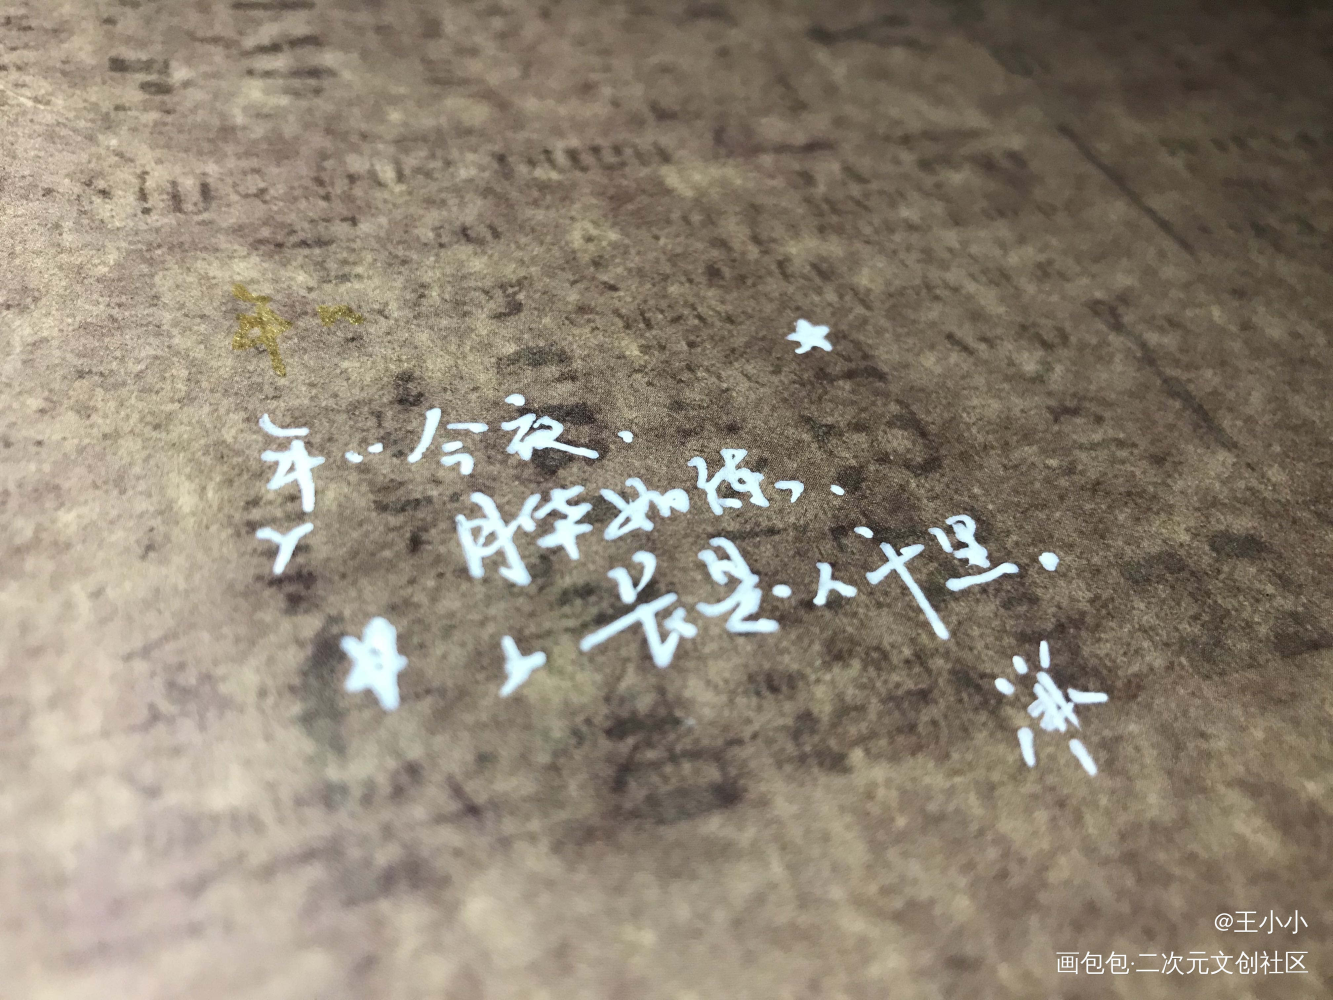 年
年丶丶今夜.
月华如练,.
长是.人千里.
@王小小
画包包·二次元文创社区